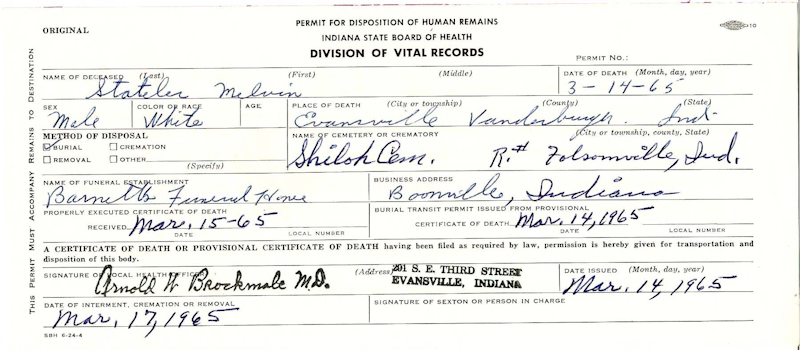 ORIGINAL
PERMIT FOR DISPOSITION OF HUMAN REMAINS
INDIANA STATE BOARD OF HEALTH
DIVISION OF VITAL RECORDS
10
PERMIT NO.:
NAME OF DECEASED (Last) (First) (Middle) DATE OF DEATH (Month, day, year)
Stateler Melvin 3-14-65
SEX COLOR OR RACE AGE PLACE OF DEATH (City or township) (County) (State)
Male White Evansville Vanderburgh Ind.
METHOD OF DISPOSAL NAME OF CEMETERY OR CREMATORY (City or township, county, State)
BURIAL CREMATION
REMOVAL OTHER (Specify)
Shiloh Cem. R.# Folsomville, Ind.
NAME OF FUNERAL ESTABLISHMENT BUSINESS ADDRESS
Barnett Funeral Home Boonville, Indiana
PROPERLY EXECUTED CERTIFICATE OF DEATH BURIAL TRANSIT PERMIT ISSUED FROM PROVISIONAL
RECEIVED Mar. 15-65 CERTIFICATE OF DEATH Mar. 14, 1965
DATE LOCAL NUMBER DATE LOCAL NUMBER
A CERTIFICATE OF DEATH OR PROVISIONAL CERTIFICATE OF DEATH having been filed as required by law, permission is hereby given for transportation and
disposition of this body.
SIGNATURE OF LOCAL HEALTH OFFICER (Address) 201 S. E. THIRD STREET DATE ISSUED (Month, day, year)
Arnold W Brockmole M.D. EVANSVILLE, INDIANA Mar. 14, 1965
DATE OF INTERMENT, CREMATION OR REMOVAL SIGNATURE OF SEXTON OR PERSON IN CHARGE
Mar. 17, 1965
SBH 6-24-4
THIS PERMIT MUST ACCOMPANY REMAINS TO DESTINATION